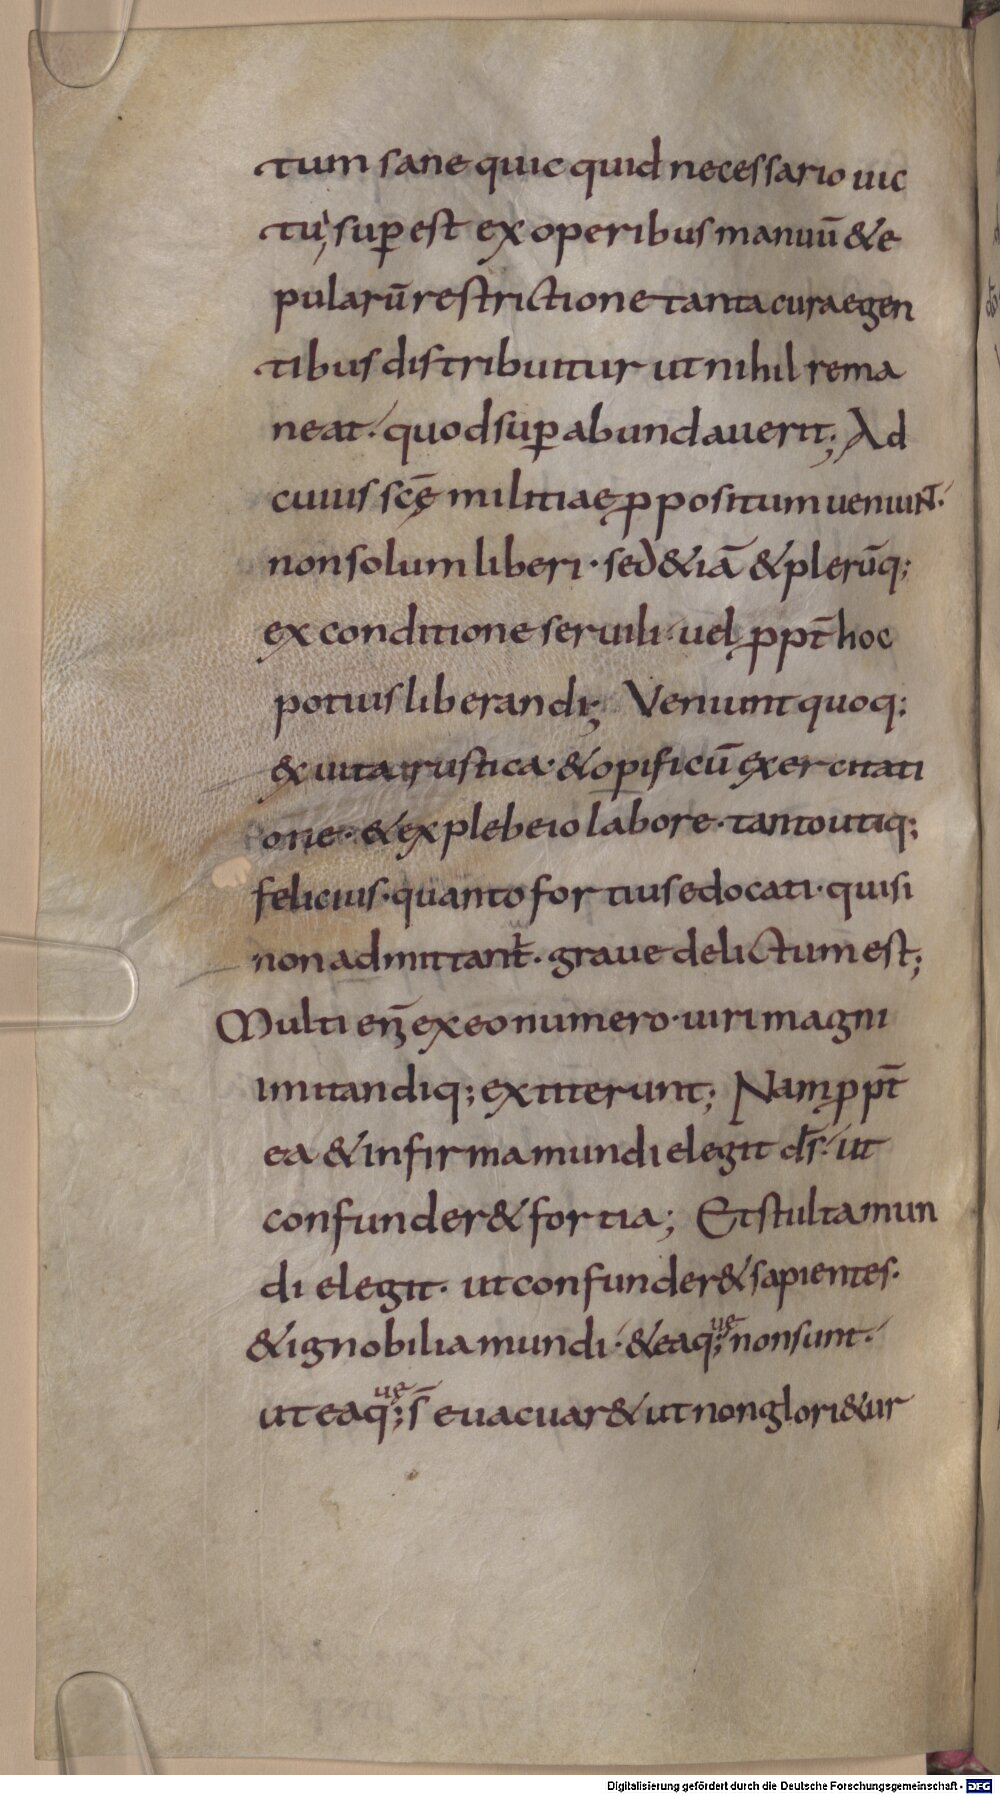 tum sane quicquid necessario uic
tui superest ex operibus manuū & e
pularū restrictione tanta cura egen
tibus distribuitur ut nihil rema
neat. quod sup̱abundauerit; Ad
cuius scę̄ militiae p̱positum ueniunt.
non solum liberi. sed &iā & plerūq;
ex conditione seruili. uel p̱pt̄ hoc
potius liberandi; Veniunt quoq;
& uita rustica. & opificū exercitati
one. & ex plebeio labore. tanto utiq;
felicius. quanto fortius edocati. qui si
non admittant̄. graue delictum est;
Multi eni̅ ex eo numero. uiri magni
imitandiq; extiterunt; Nam p̱pt̄
ea & infirma mundi elegit d̄s. ut
confunder& fortia; Et stulta mun
di elegit. ut confunder& sapientes.
& ignobilia mundi. & ea q;ue non sunt.
ut ea q;ue s̄ euacuar& ut non glori&ur
Digitalisierung gefördert durch die Deutsche Forschungsgemeinschaft - DFG